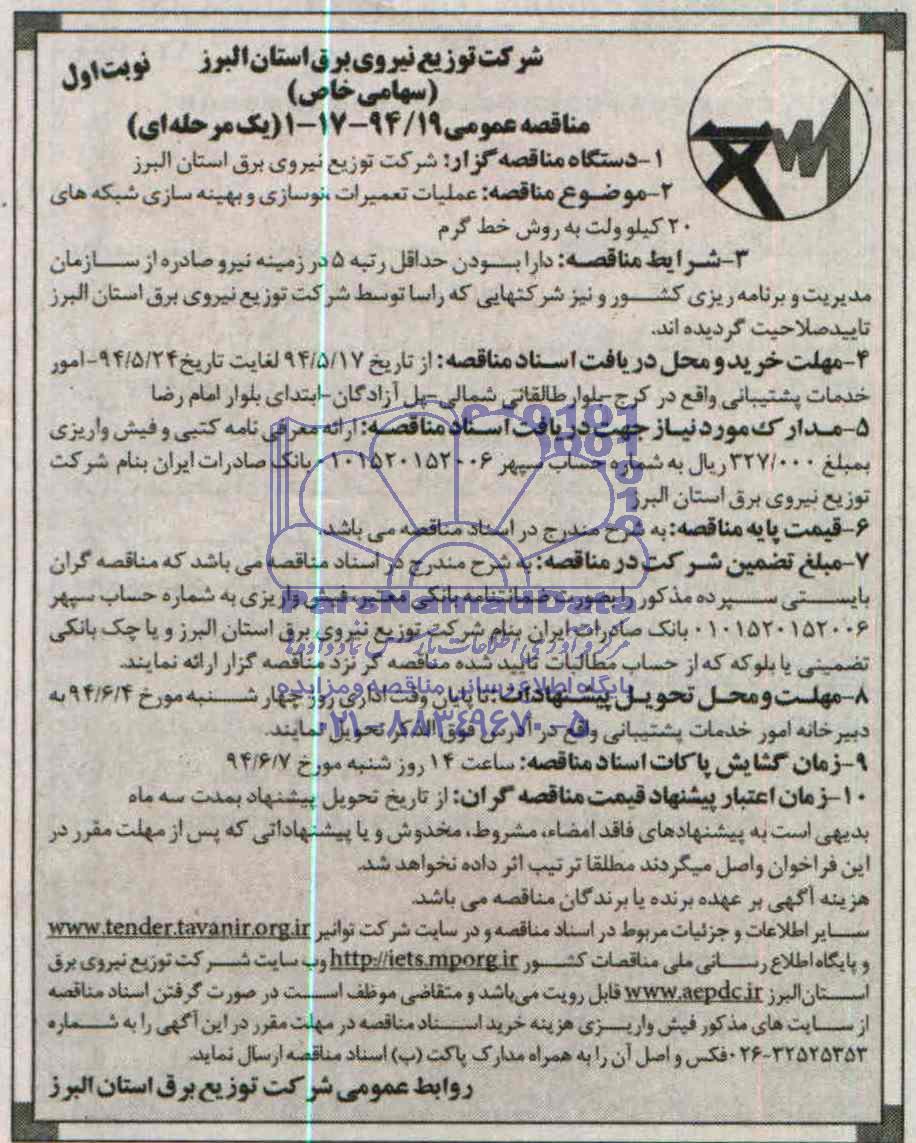 شرکت توزیع نیروی برق استان البرز
نوبت اول
(سهامی خاص)
مناقصه عمومی ۹۴/۱۹-۱۷-۱ (یک مرحله ای)
۱-دستگاه مناقصه گزار: شرکت توزیع نیروی برق استان البرز
۲-موضوع مناقصه: عملیات تعمیرات نوسازی و بهینه سازی شبکه های
۲۰ کیلو ولت به روش خط گرم
۳-شرایط مناقصه: دارا بودن حداقل رتبه ۵ در زمینه نیرو صادره از سازمان
مدیریت و برنامه ریزی کشور و نیز شرکتهایی که راسا توسط شرکت توزیع نیروی برق استان البرز
تایید صلاحیت گردیده اند.
۴-مهلت خرید و محل دریافت اسناد مناقصه: از تاریخ ۹۴/۵/۱۷ لغایت تاریخ ۹۴/۵/۲۴-امور
خدمات پشتیبانی واقع در کرج-بلوار طالقانی شمالی-پل آزادگان-ابتدای بلوار امام رضا
۵-مدارک مورد نیاز جهت دریافت اسناد مناقصه: ارائه معرفی نامه کتبی و فیش واریزی
بمبلغ ۳۲۷/۰۰۰ ریال به شماره حساب سپهر ۰۱۰۱۵۲۰۱۵۲۰۰۶ بانک صادرات ایران بنام شرکت
توزیع نیروی برق استان البرز
۶-قیمت پایه مناقصه: به شرح مندرج در اسناد مناقصه می باشد.
۷-مبلغ تضمین شرکت در مناقصه: به شرح مندرج در اسناد مناقصه می باشد که مناقصه گران
بایستی سپرده مذکور را بصورت ضمانتنامه بانکی معتبر، فیش واریزی به شماره حساب سپهر
۰۱۰۱۵۲۰۱۵۲۰۰۶ بانک صادرات ایران بنام شرکت توزیع نیروی برق استان البرز و یا چک بانکی
تضمینی یا بلوکه که از حساب مطالبات تایید شده مناقصه گر نزد مناقصه گزار ارائه نمایند.
۸-مهلت و محل تحویل پیشنهادات: تا پایان وقت اداری روز چهار شنبه مورخ ۹۴/۶/۴ به
دبیرخانه امور خدمات پشتیبانی واقع در آدرس فوق الذکر تحویل نمایند.
۹-زمان گشایش پاکات اسناد مناقصه: ساعت ۱۴ روز شنبه مورخ ۹۴/۶/۷
۱۰-زمان اعتبار پیشنهاد قیمت مناقصه گران: از تاریخ تحویل پیشنهاد بمدت سه ماه
بدیهی است به پیشنهادهای فاقد امضاء، مشروط، مخدوش و یا پیشنهاداتی که پس از مهلت مقرر در
این فراخوان واصل میگردند مطلقا ترتیب اثر داده نخواهد شد.
هزینه آگهی بر عهده برنده یا برندگان مناقصه می باشد.
سایر اطلاعات و جزئیات مربوط در اسناد مناقصه و در سایت شرکت توانیر www.tender.tavanir.org.ir
و پایگاه اطلاع رسانی ملی مناقصات کشور http://iets.mporg.ir وب سایت شرکت توزیع نیروی برق
استان البرز www.aepdc.ir قابل رویت می‌باشد و متقاضی موظف است در صورت گرفتن اسناد مناقصه
از سایت های مذکور فیش واریزی هزینه خرید اسناد مناقصه در مهلت مقرر در این آگهی را به شماره
۰۲۶-۳۲۵۲۵۳۵۳ فکس و اصل آن را به همراه مدارک پاکت (ب) اسناد مناقصه ارسال نماید.
روابط عمومی شرکت توزیع برق استان البرز
ParsNamadData
مرکز فرآوری اطلاعات پارس نماد داده ها
پایگاه اطلاع رسانی مناقصه و مزایده
۰۲۱-۸۸۳۴۹۶۷۰-۵